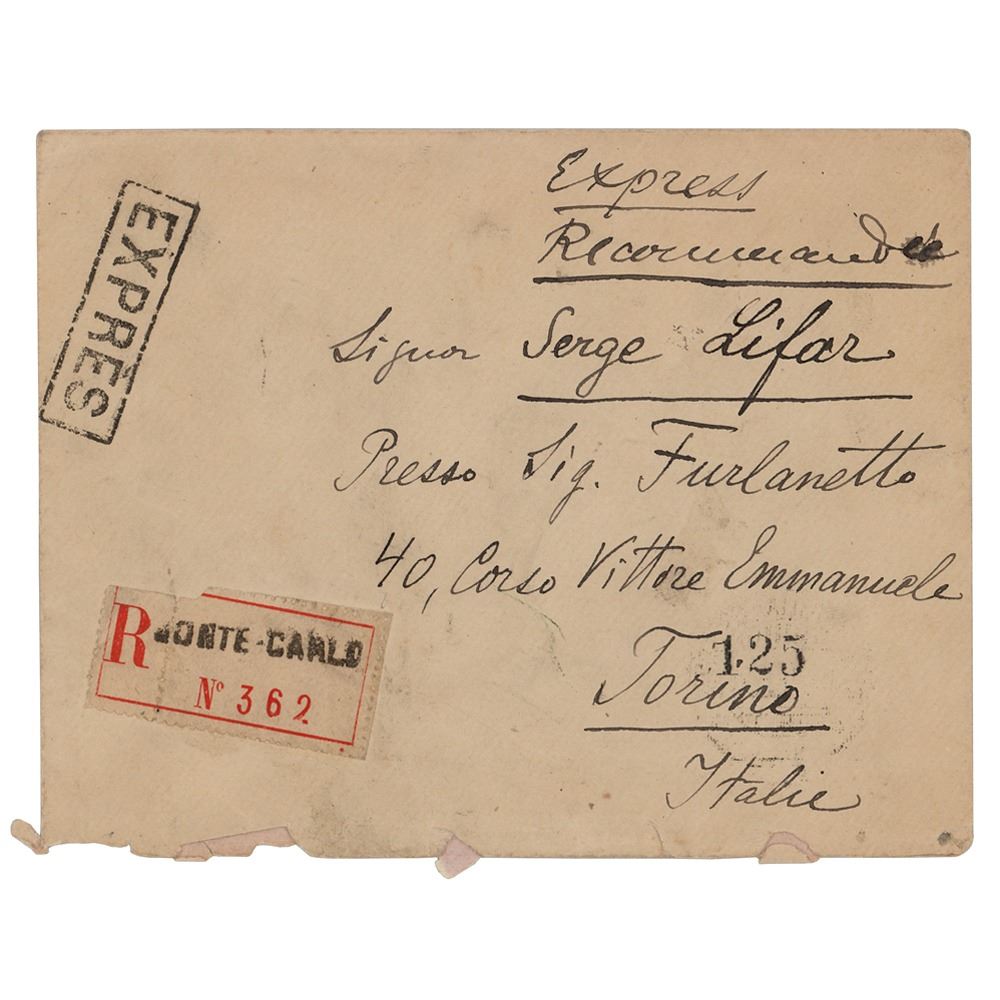 Express
Recommandée
EXPRÈS
Signor Serge Lifar
Presso Sig. Furlanetto
40, Corso Vittore Emmanuele
125
Torino
Italie
R MONTE-CARLO
Nº 362